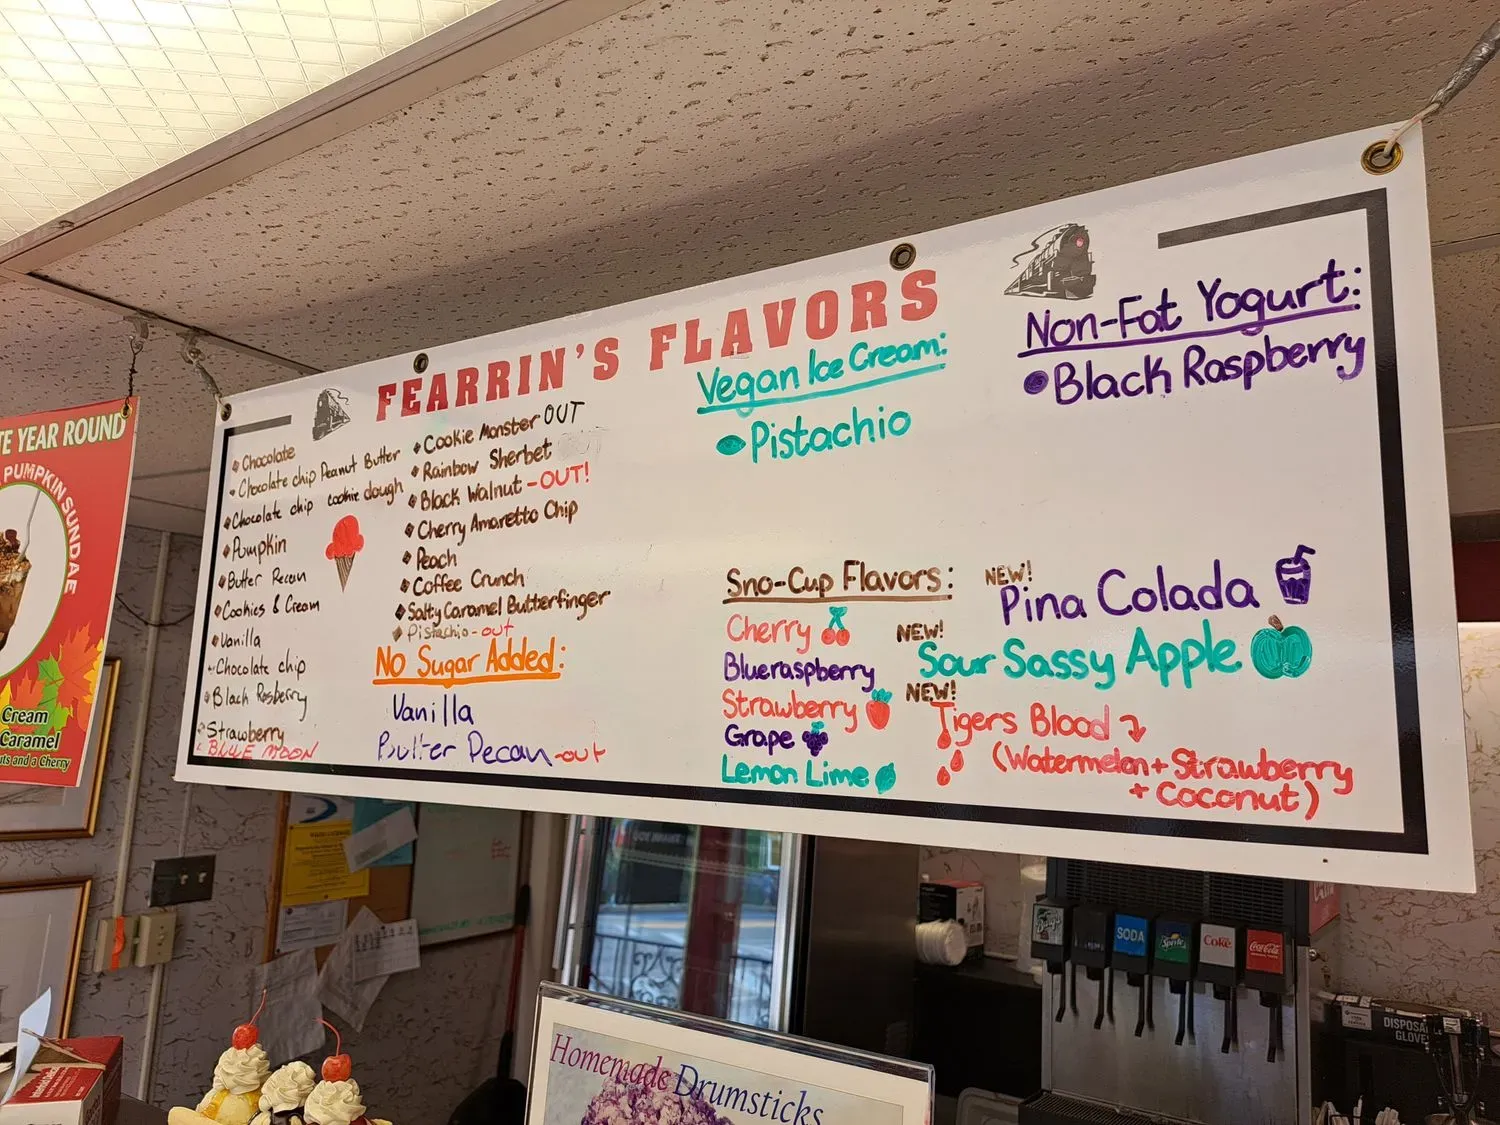 FEARRIN'S FLAVORS
Chocolate
Chocolate chip Peanut Butter
Chocolate chip cookie dough
Pumpkin
Butter Pecan
Cookies & Cream
Vanilla
Chocolate chip
Black Rasberry
Strawberry
BLUE MOON
Cookie Monster OUT
Rainbow Sherbet
Black Walnut - OUT!
Cherry Amaretto Chip
Peach
Coffee Crunch
Salty Caramel Butterfinger
Pistachio - out
No Sugar Added:
Vanilla
Butter Pecan - out
Vegan Ice Cream:
Pistachio
Non-Fat Yogurt:
Black Raspberry
Sno-Cup Flavors:
Cherry
Blueraspberry
Strawberry
Grape
Lemon Lime
NEW!
Pina Colada
NEW!
Sour Sassy Apple
NEW!
Tigers Blood
(Watermelon + Strawberry
+ Coconut)
TE YEAR ROUND
PUMPKIN SUNDAE
Cream
Caramel
uts and a Cherry
Homemade Drumsticks
Barq's
SODA
Sprite
Coke
Coca-Cola
DISPOSA
GLOVE